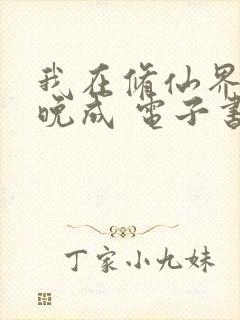 我在修仙界
晚成 電子書
丁家小九妹